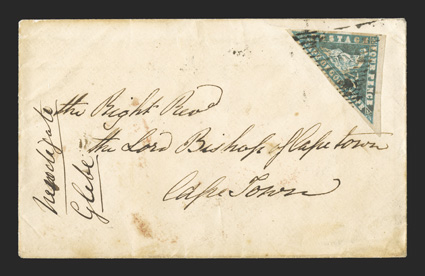 POSTAGE
FOUR PENCE
the Right Revd
the Lord Bishop of Capetown
Cape Town
Glebe